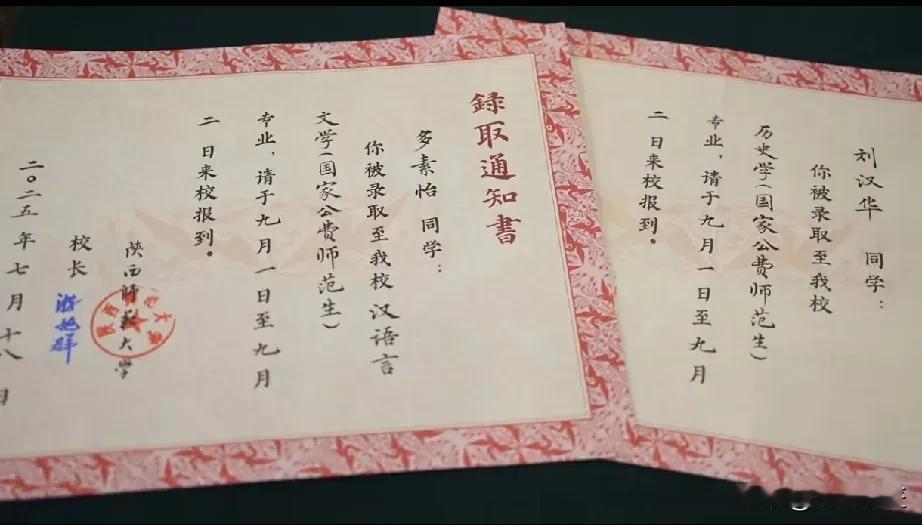 錄取通知書
多素怡 同学：
你被录取至我校 汉语言
文学(国家公费师范生)
专业，请于九月一日至九月
二日来校报到。
陝西師範大學
校长 游旭群
二〇二五年七月十八日
刘汉华 同学：
你被录取至我校
历史学(国家公费师范生)
专业，请于九月一日至九月
二日来校报到。